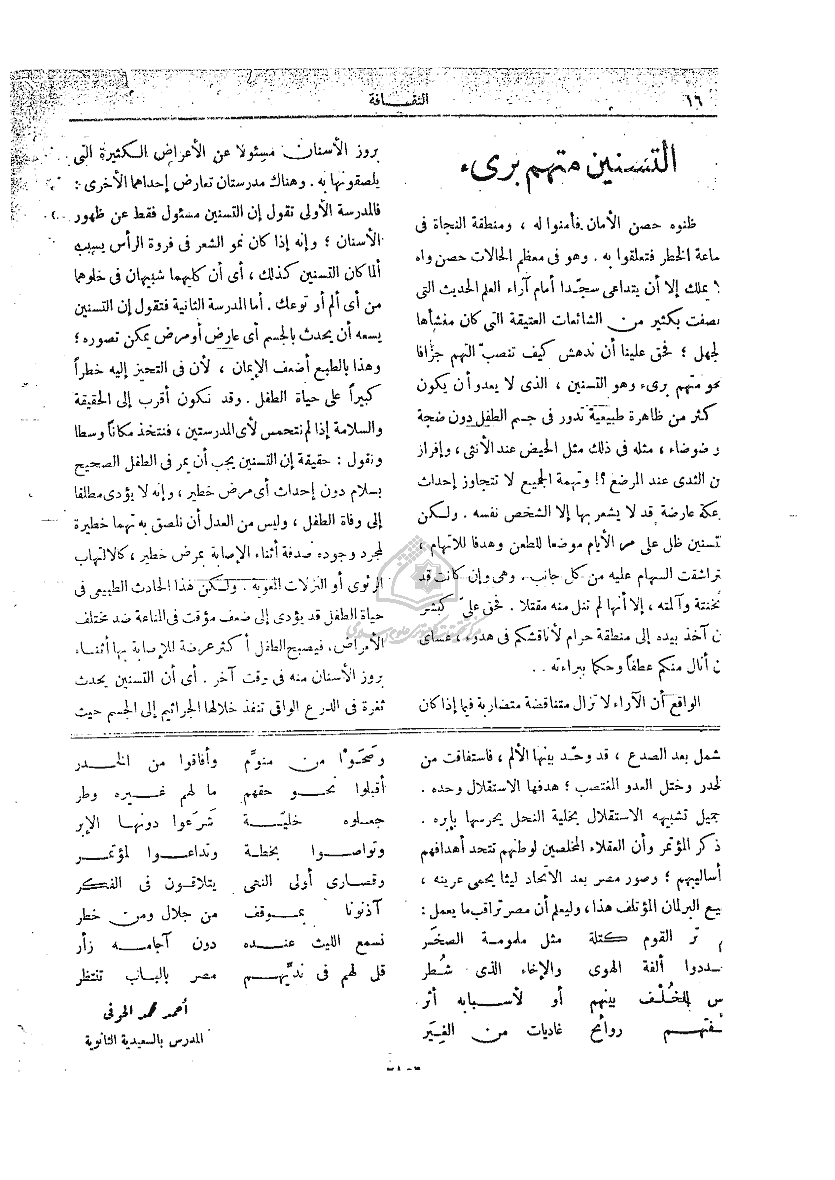 ١٦
الثقافة
التسنين متهم برىء
ظنوه حصن الأمان فأمنوا له ، ومنطقة النجاة فى
ساعة الخطر فتعلقوا به . وهو فى معظم الحالات حصن واه
لا يملك إلا أن يتداعى سجّدا أمام آراء العلم الحديث التى
عصفت بكثير من الشائعات العتيقة التى كان منشأها
الجهل ؛ فحق علينا أن ندهش كيف تنصبّ التهم جزافا
نحو متهم برىء وهو التسنين ، الذى لا يعدو أن يكون
أكثر من ظاهرة طبيعية تدور فى جسم الطفل دون ضجة
و ضوضاء ، مثله فى ذلك مثل الحيض عند الأنثى ، وإفراز
ن الثدى عند المرضع ؟! وتهمة الجميع لا تتجاوز إحداث
عكة عارضة قد لا يشعر بها إلا الشخص نفسه . ولكن
لتسنين ظل على مر الأيام موضعا للطعن وهدفا للاتهام ،
تراشقت السهام عليه من كل جانب . وهى وإن كانت قد
ثخنته وآلمته ، إلا أنها لم تنل منه مقتلا . فحق علىّ كبشر
ن آخذ بيده إلى منطقة حرام لأناقشكم فى هدوء ، فعساى
ن أنال منكم عطفاً وحكما ببراءته . .
الواقع أن الآراء لا تزال متناقضة متضاربة فيما إذا كان
بروز الأسنان مسئولا عن الأعراض الكثيرة التى
يلصقونها به . وهناك مدرستان تعارض إحداهما الأخرى :
فالمدرسة الأولى تقول إن التسنين مسئول فقط عن ظهور
الأسنان ؛ وإنه إذا كان نمو الشعر فى فروة الرأس يسبب
ألما كان التسنين كذلك ، أى أن كليهما شبيهان فى خلوهما
من أى ألم أو توعك . أما المدرسة الثانية فتقول إن التسنين
يسعه أن يحدث بالجسم أى عارض أو مرض يمكن تصوره ؛
وهذا بالطبع أضعف الإيمان ، لأن فى التحيز إليه خطراً
كبيراً على حياة الطفل . وقد نكون أقرب إلى الحقيقة
والسلامة إذا لم نتحمس لأى المدرستين ، فنتخذ مكاناً وسطا
ونقول : حقيقة إن التسنين يجب أن يمر فى الطفل الصحيح
بسلام دون إحداث أى مرض خطير ، وإنه لا يؤدى مطلقا
إلى وفاة الطفل ، وليس من العدل أن نلصق به تهما خطيرة
لمجرد وجوده صدفة أثناء الإصابة بمرض خطير ، كالالتهاب
الرئوى أو النزلات المعوية . ولكن هذا الحادث الطبيعى فى
حياة الطفل قد يؤدى إلى ضعف مؤقت فى المناعة ضد مختلف
الأمراض ، فيصبح الطفل أكثر عرضة للإصابة بها أثناء
بروز الأسنان منه فى وقت آخر . أى أن التسنين يحدث
ثغرة فى الدرع الواقى تنفذ خلالها الجراثيم إلى الجسم حيث
شمل بعد الصدع ، قد وحّد بينها الألم ، فاستفاقت من
لخدر وختل العدو المغتصب ؛ هدفها الاستقلال وحده .
جميل تشبيهه الاستقلال بخلية النحل يحرسها بإبره .
ذكر المؤتمر وأن العقلاء المخلصين لوطنهم تتحد أهدافهم
أساليبهم ؛ وصور مصر بعد الاتحاد ليثا يحمى عرينه ،
يع البرلمان المؤتلف هذا ، وليعلم أن مصر تراقب ما يعمل :
م تر القوم كتلة مثل ملمومة الصخَر
ـددوا ألفة الهوى والإخاء الذى شُطر
س للخُلْف بينهم أو لأسبابه أثر
ـفتهم روائح غاديات من الغِيَر
وصَحَوْا من منوِّم وأفاقوا من الخدر
أقبلوا نحو حقهم ما لهم غيره وطر
جعلوه خليّة شَرَعوا دونها الإبر
وتواصوا بخطة وتداعوا لمؤتمر
وقصارى أولى النهى يتلاقون فى الفكر
آذنونا بموقف من جلال ومن خطر
نسمع الليث عنده دون آجامه زأر
قل لهم فى نديّهم مصر بالباب تنتظر
أحمد محمد الحوفى
المدرس بالسعيدية الثانوية